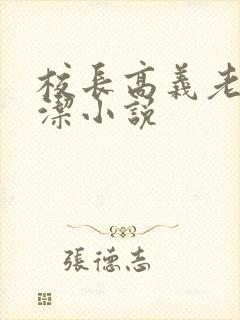 校長高義老
潔小說
張德志